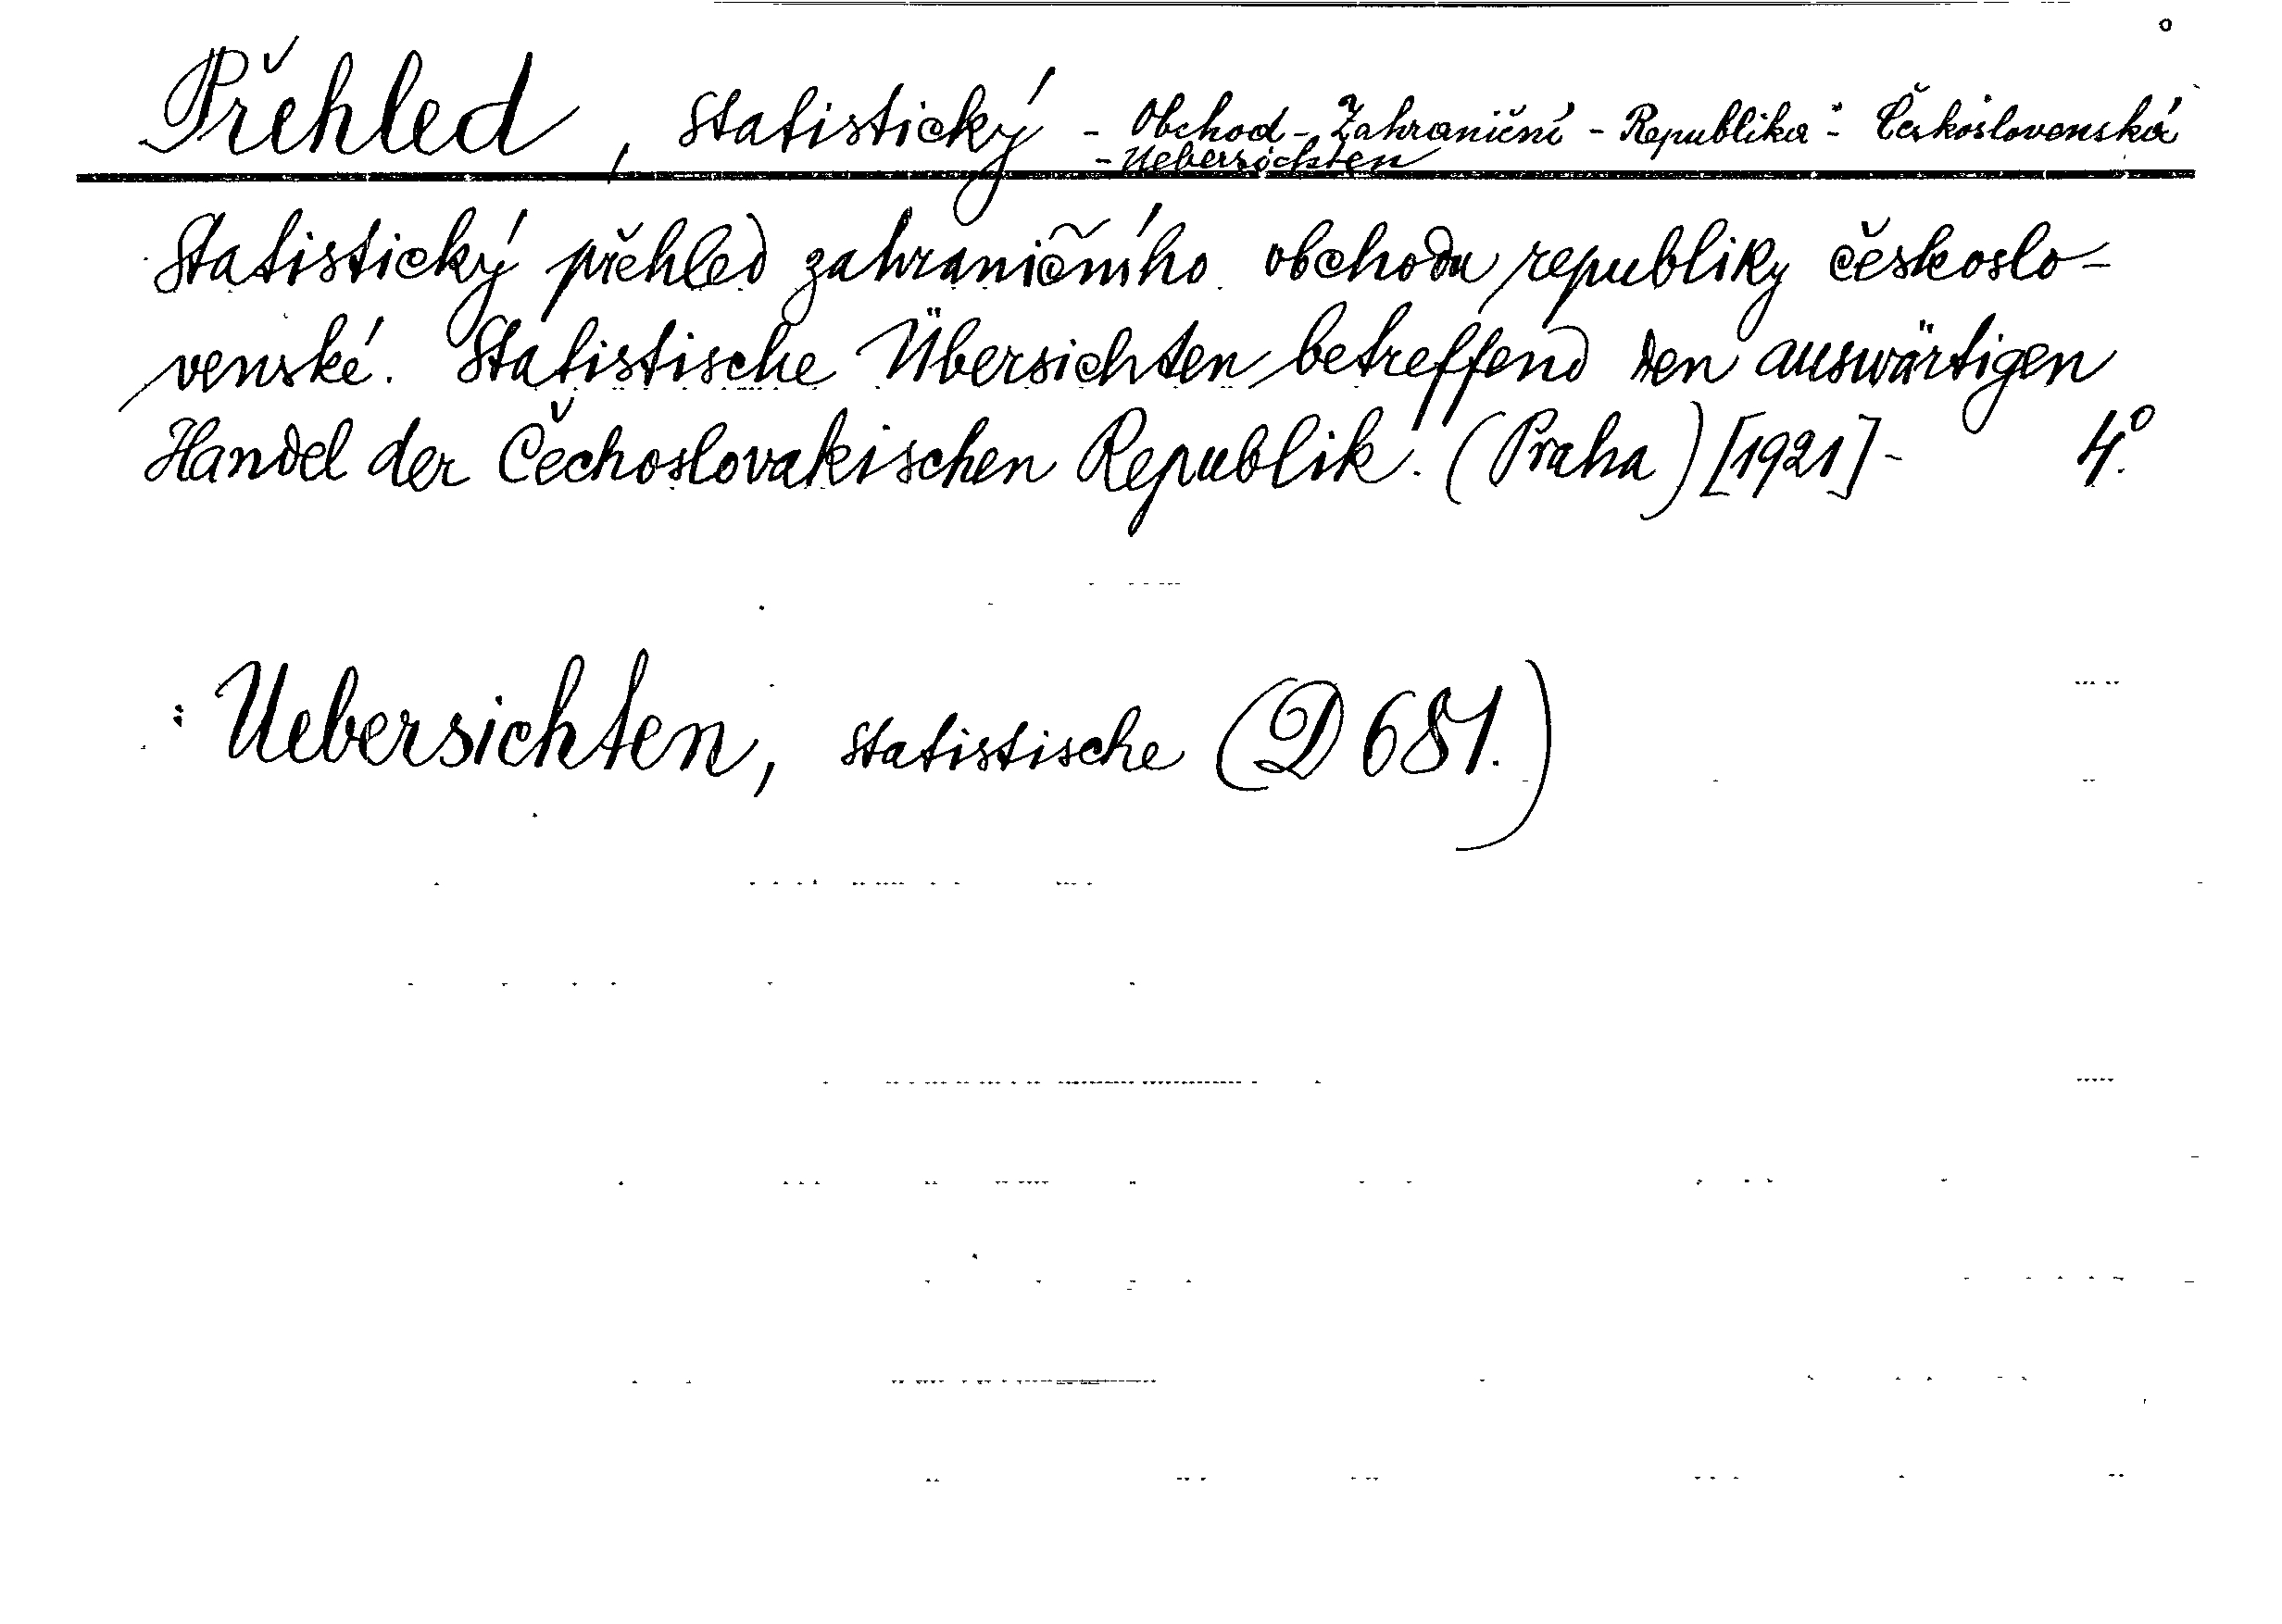 Přehled, statistický - Obchod - Zahraniční - Republika - Československá
- Uebersichten
Statistický přehled zahraničního obchodu republiky českoslo-
venské. Statistische Übersichten betreffend den auswärtigen
Handel der Čechoslovakischen Republik. (Praha) [1921] - 4°.
: Uebersichten, statistische (D 681.)